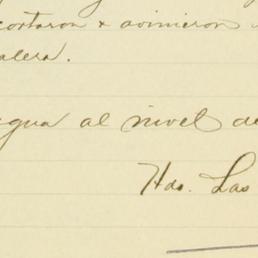 cortaron & avinieron
alera.
agua al nivel de
Hdo. Las